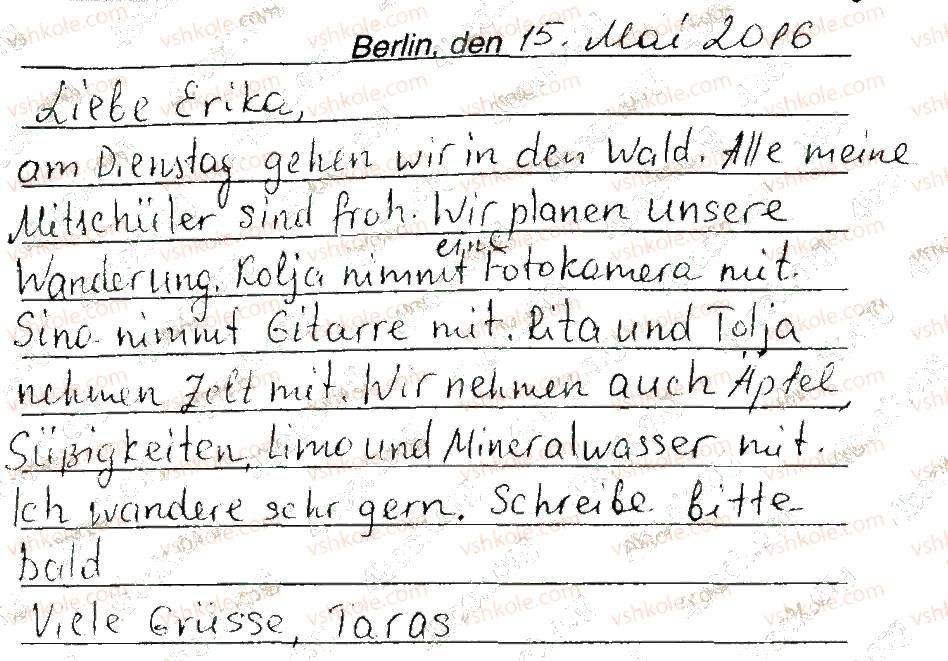 Berlin, den 15. Mai 2016
Liebe Erika,
am Dienstag gehen wir in den Wald. Alle meine
Mitschüler sind froh. Wir planen unsere
Wanderung. Kolja nimmt eine Fotokamera mit.
Sina nimmt Gitarre mit. Rita und Tolja
nehmen Zelt mit. Wir nehmen auch Äpfel,
Süßigkeiten, Limo und Mineralwasser mit.
Ich wandere sehr gern. Schreibe bitte
bald
Viele Grüsse, Taras